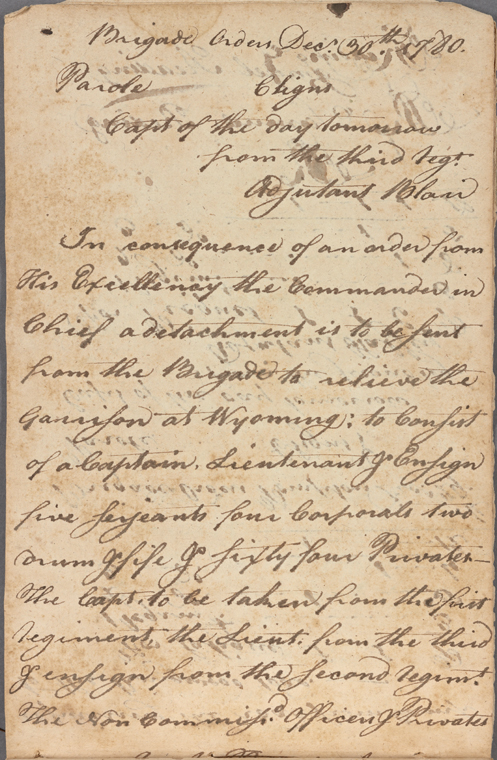 Brigade Orders Decr. 30th. 1780.
Parole
Capt of the day tomorrow
from the third regt.
Adjutant Blair
In consequence of an order from
His Excellency the Commander in
Chief a detachment is to be sent
from the Brigade to relieve the
Garrison at Wyoming; to Consist
of a Captain, Lieutenant & Ensign
five serjeants four Corporals two
drum & fife & sixty four Privates—
The Capt. to be taken from the first
regiment, the Lieut. from the third
& ensign from the second regimt.
The Non Commissd. Officers & Privates